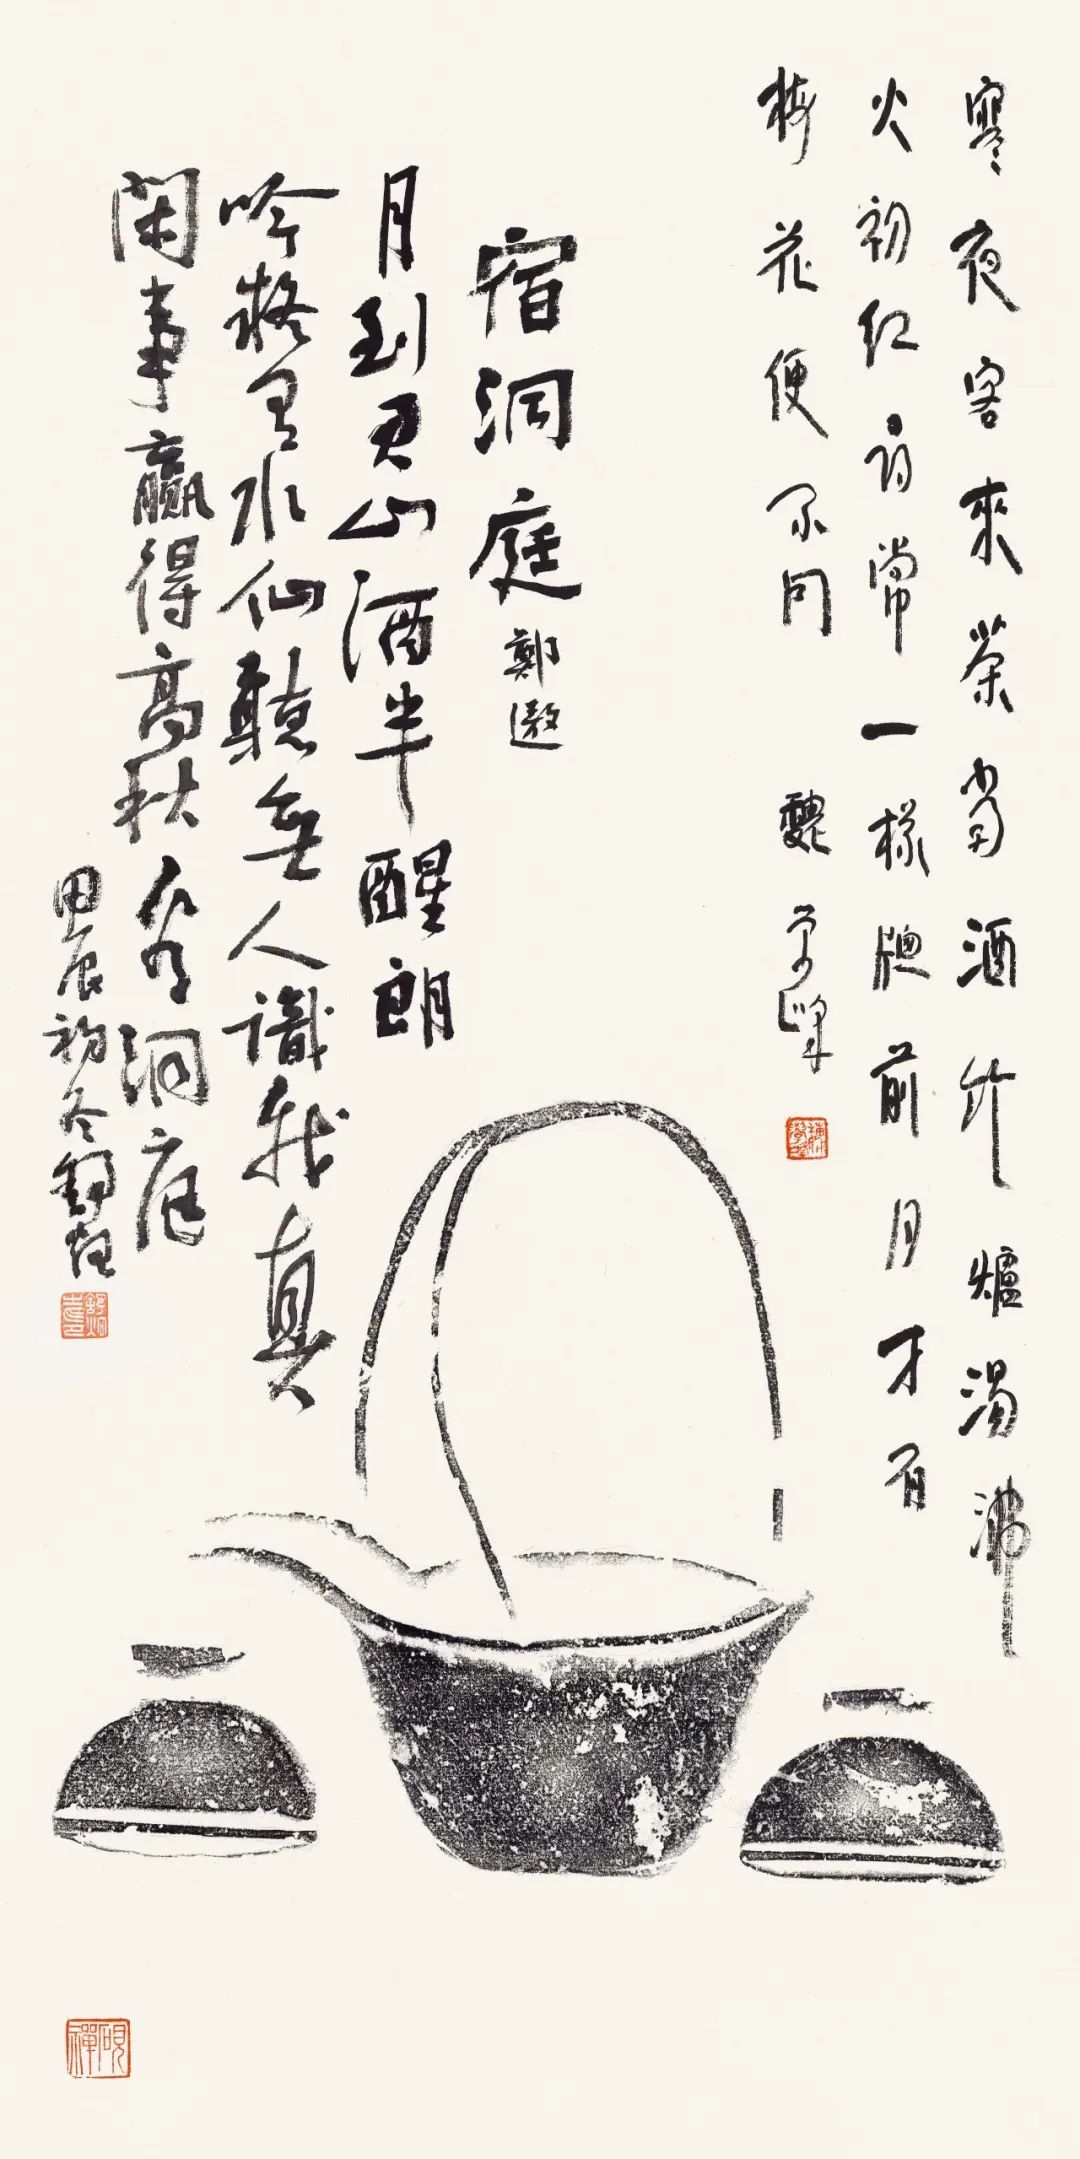 寒夜客來茶當酒竹爐湯沸
火初红尋常一樣牕前月才有
梅花便不同
魏學峰
宿洞庭 鄭遨
月到君山酒半醒朗
吟疑有水仙聽無人識我真
閑事贏得高秋看洞庭
甲辰初冬舒炯